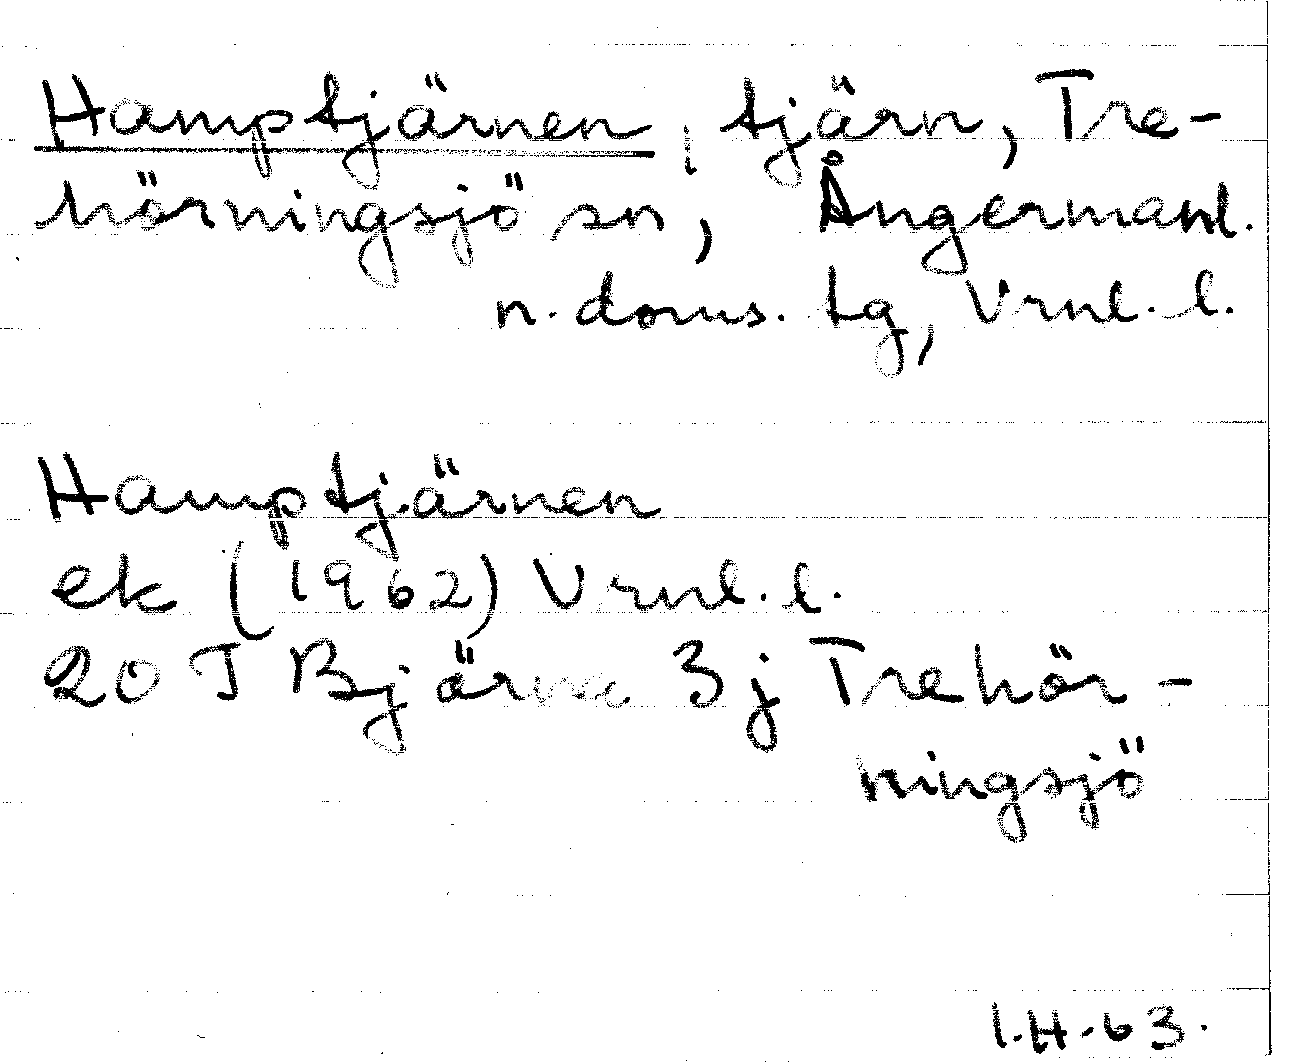 Hamptjärnen, tjärn, Tre-
hörningsjö sn, Ångermanl.
n. doms. tg, Vrnl. l.
Hamptjärnen
ek (1962) Vrnl. l.
20 J Bjärna 3j Trehör-
ningsjö
I.H.63.